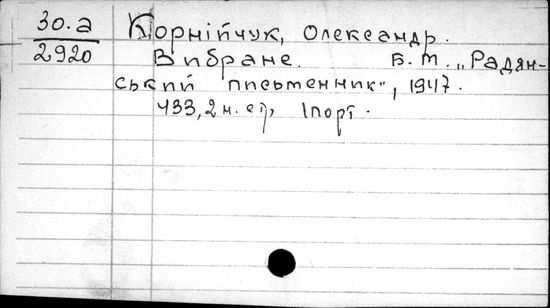 30.а
2920
Корнійчук, Олександр.
Вибране. Б. М. „Радян-
ський письменник", 1947.
433, 2 н. ст, 1 порт.